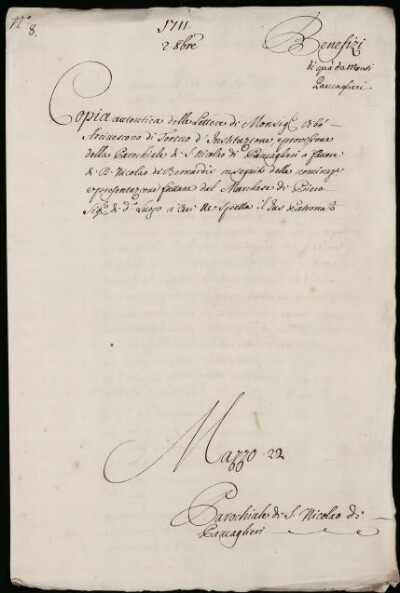 N.º 8.
1711
2 8bre
Benefizi
di quà da Monti
Pancaglieri
Copia autentica delle Lettere di Monsig.r Vibò
Arcivescovo di Torino d'Instituzione, e provisione
della Parochiale di S. Nicolao di Pancaglieri a favore
di D. Nicolao de Bernardis in seguito della nomina, e
e presentazione fattane dal Marchese di
Sig.r di d.o Luogo a cui ne spetta il Jus Patronato
Mazzo 22
Parochiale di S. Nicolao di
Pancaglieri